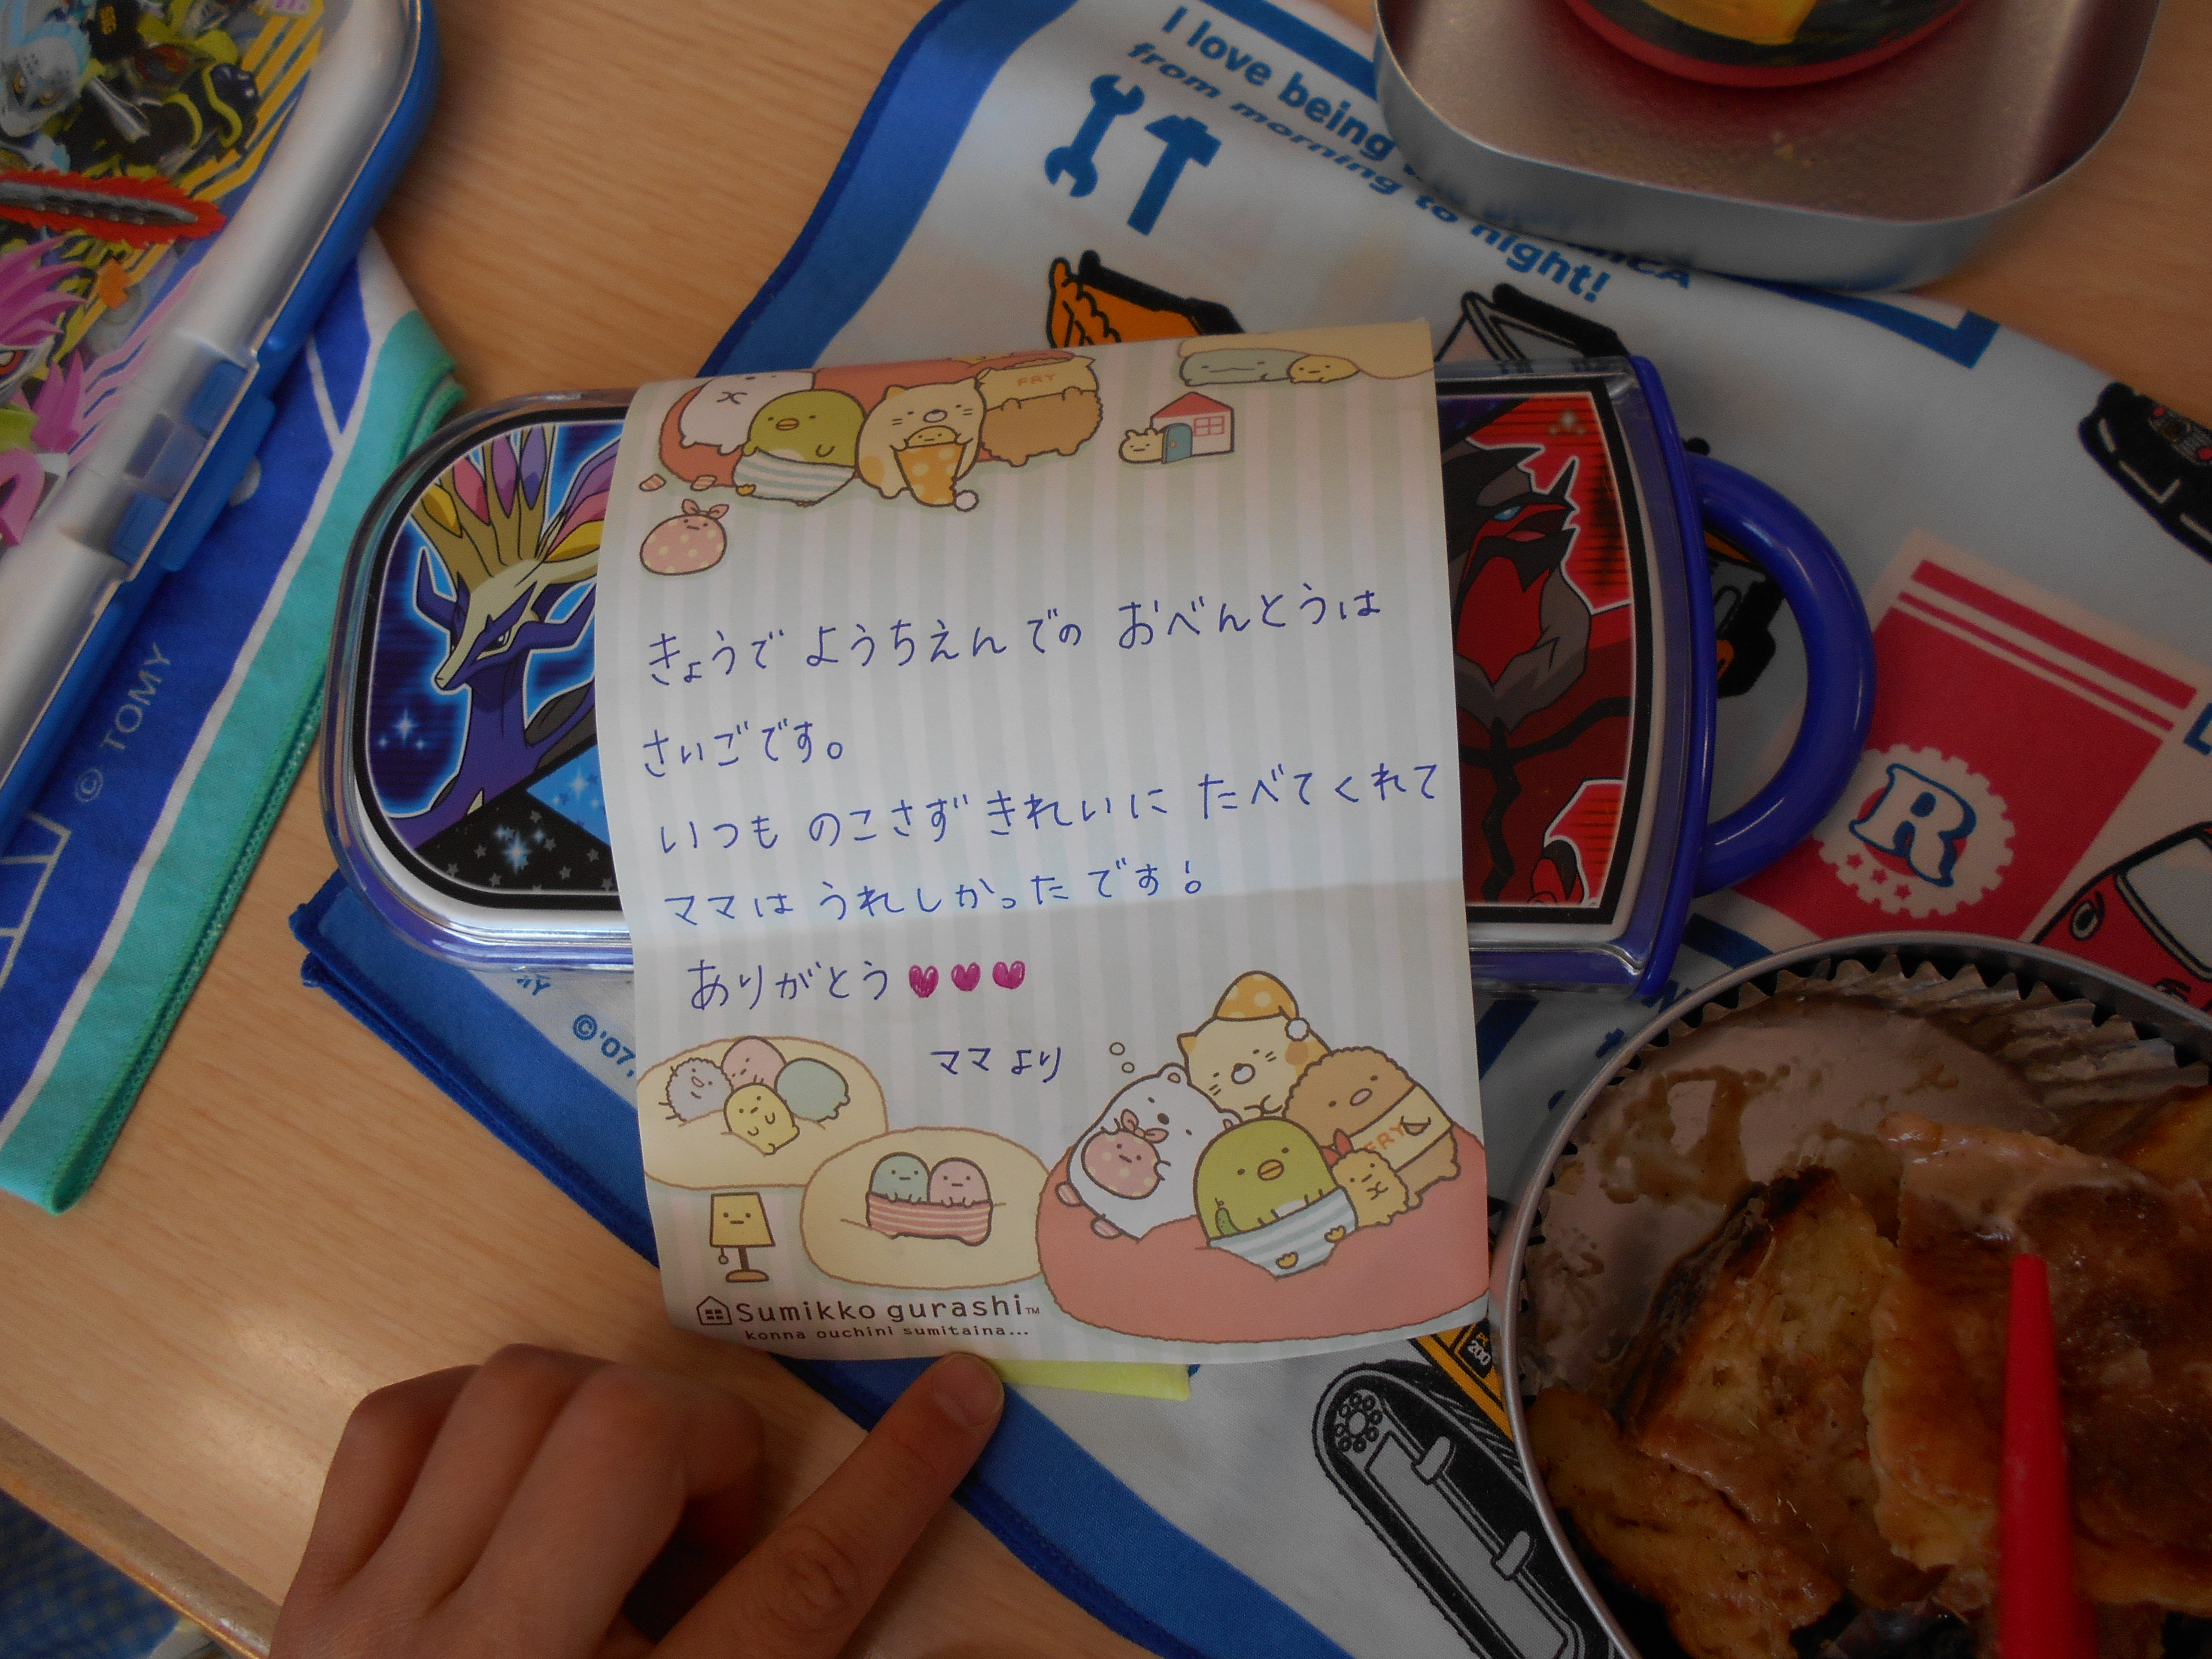 I love being
from morning to night!
FRY
きょうで ようちえん での おべんとうは
さいごです。
いつも のこさず きれいに たべてくれて
ママは うれしかったです!
ありがとう
ママより
FRY
Sumikko gurashi™
konna ouchini sumitaina...
© TOMY
©'07,
R
200